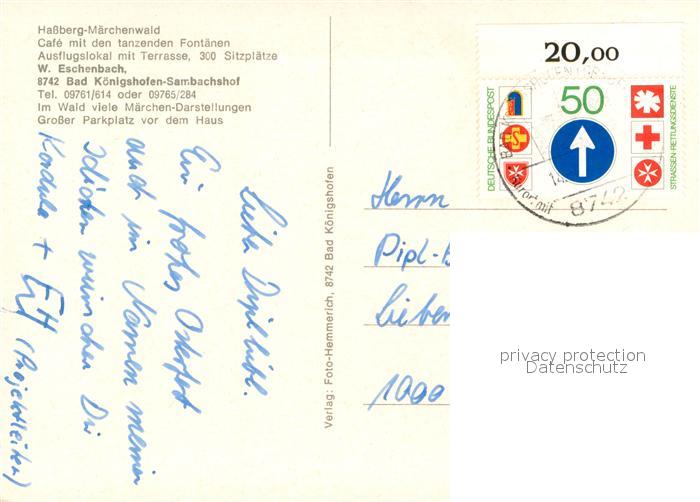 Haßberg-Märchenwald
Café mit den tanzenden Fontänen
Ausflugslokal mit Terrasse, 300 Sitzplätze
W. Eschenbach,
8742 Bad Königshofen-Sambachshof
Tel. 09761/614 oder 09765/284
Im Wald viele Märchen-Darstellungen
Großer Parkplatz vor dem Haus
Dipl. bibl.
Ein frohes Osterfest
auch im Namen meiner
Idioten wünschen Dir
Kordula +
(Projektleiter)
Verlag: Foto-Hemmerich, 8742 Bad Königshofen
20,00
DEUTSCHE BUNDESPOST
50
STRASSEN-RETTUNGSDIENSTE
8742
Herrn
Dipl-B
Lieben
1000
privacy protection
Datenschutz